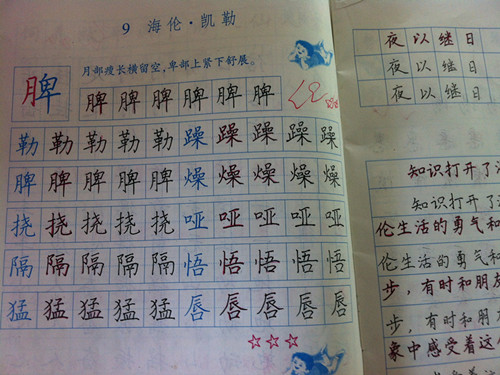 9 海伦·凯勒
月部瘦长横留空，卑部上紧下舒展。
脾
脾 脾 脾 脾 脾 脾
勒 勒 勒 勒 勒 躁 躁 躁 躁 躁
脾 脾 脾 脾 脾 燥 燥 燥 燥 燥
挠 挠 挠 挠 挠 哑 哑 哑 哑 哑
隔 隔 隔 隔 隔 悟 悟 悟 悟 悟
猛 猛 猛 猛 猛 唇 唇 唇 唇 唇
夜 以 继 日
夜 以 继 日
夜 以 继 日
知识打开了
知识打开了
伦生活的勇气和
伦生活的勇气和
步，有时和朋
步，有时和朋
象中感受着这